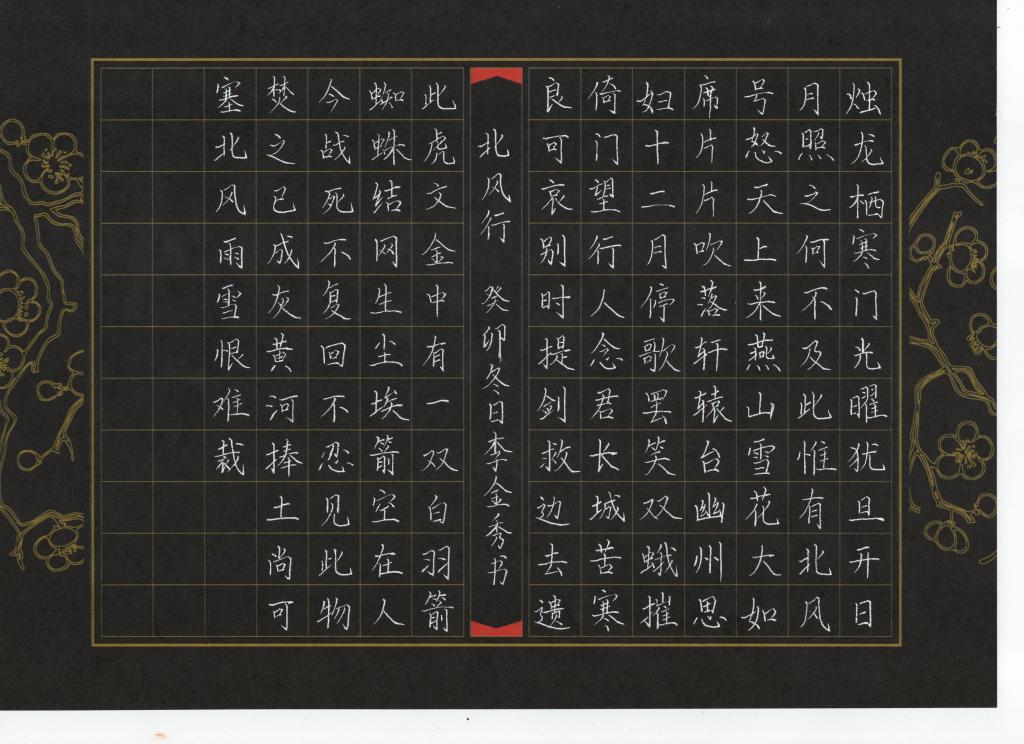 烛龙栖寒门光曜犹旦开日
月照之何不及此惟有北风
号怒天上来燕山雪花大如
席片片吹落轩辕台幽州思
妇十二月停歌罢笑双蛾摧
倚门望行人念君长城苦寒
良可哀别时提剑救边去遗
北风行 癸卯冬日李金秀书
此虎文金中有一双白羽箭
蜘蛛结网生尘埃箭空在人
今战死不复回不忍见此物
焚之已成灰黄河捧土尚可
塞北风雨雪恨难裁